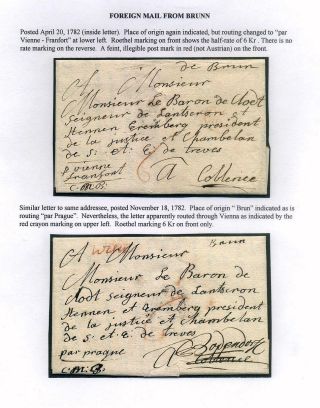 FOREIGN MAIL FROM BRUNN
Posted April 20, 1782 (inside letter). Place of origin again indicated, but routing changed to "par
Vienne - Franfort" at lower left. Roethel marking on front shows the half-rate of 6 Kr. There is no
rate marking on the reverse. A feint, illegible post mark in red (not Austrian) on the front.
de Brun
A Monsieur
Monsieur Le Baron de Clodt
Seigneur de Lantscron et
Hennen Eremberg president
de la justice et Chambelan
de S: et E: de treves
p vienne
franfort
A Coblence
Similar letter to same addressee, posted November 18, 1782. Place of origin " Brun" indicated as is
routing "par Prague". Nevertheless, the letter apparently routed through Vienna as indicated by the
red crayon marking on upper left. Roethel marking 6 Kr on front only.
Brunn
A Monsieur
Monsieur Le Baron de
Clodt Seigneur de Lantscron
Hennen et Eremberg president
de la justice et Chambelan
de S: et E: de treves
par prague
A Bodendorf
Coblence